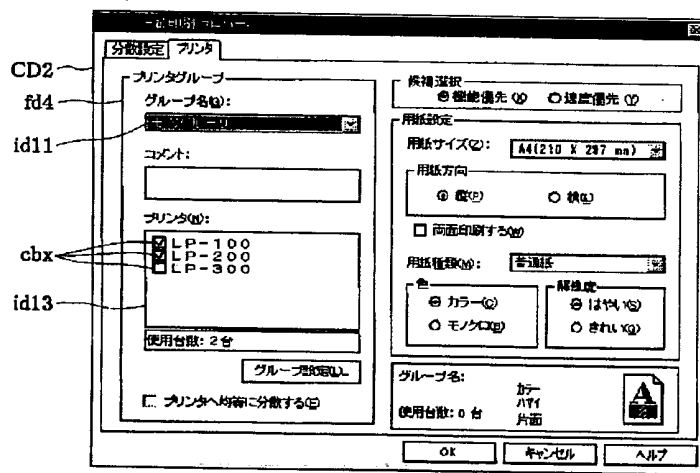 分散設定 プリンタ
CD2
fd4
id11
cbx
id13
プリンタグループ
グループ名(G):
コメント:
プリンタ(N):
LP-100
LP-200
LP-300
使用台数: 2台
グループ設定(L)...
プリンタへ均等に分散する(E)
候補選択
機能優先(X) 速度優先(Y)
用紙設定
用紙サイズ(Z): A4(210 X 297 mm)
用紙方向
縦(P) 横(L)
両面印刷する(W)
用紙種類(M): 普通紙
色
カラー(C)
モノクロ(B)
解像度
はやい(S)
きれい(Q)
グループ名:
使用台数: 0 台
カラー
ハヤイ
片面
A
OK キャンセル ヘルプ